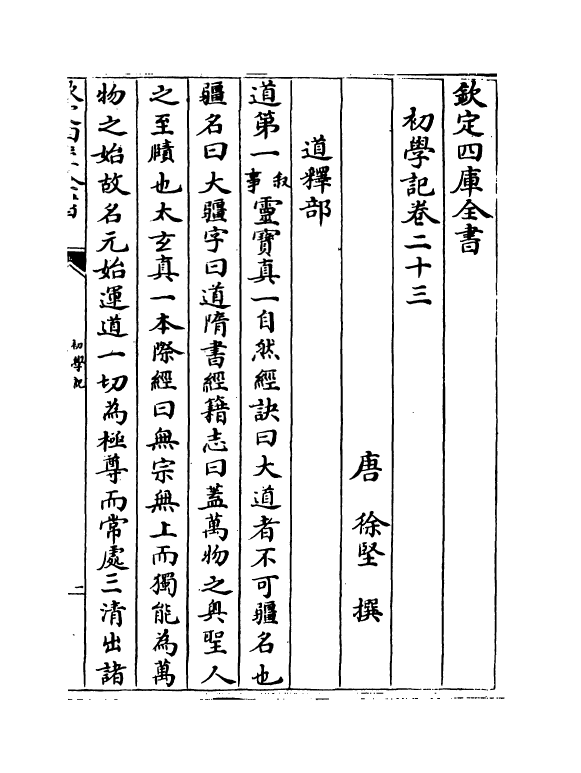 欽定四庫全書
初學記卷二十三
唐 徐堅 撰
道釋部
道第一叙事靈寶真一自然經訣曰大道者不可彊名也
彊名曰大彊字曰道隋書經籍志曰蓋萬物之奥聖人
之至賾也太玄真一本際經曰無宗無上而獨能為萬
物之始故名元始運道一切為極尊而常處三清出諸
初學記